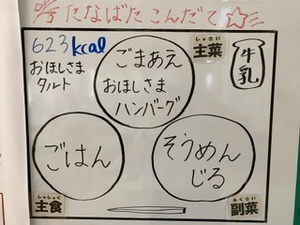 たなばたこんだて☆
623kcal
おほしさま
タルト
ごまあえ
おほしさま
ハンバーグ
しゅさい
主菜
牛乳
ごはん
しゅしょく
主食
そうめん
じる
ふくさい
副菜